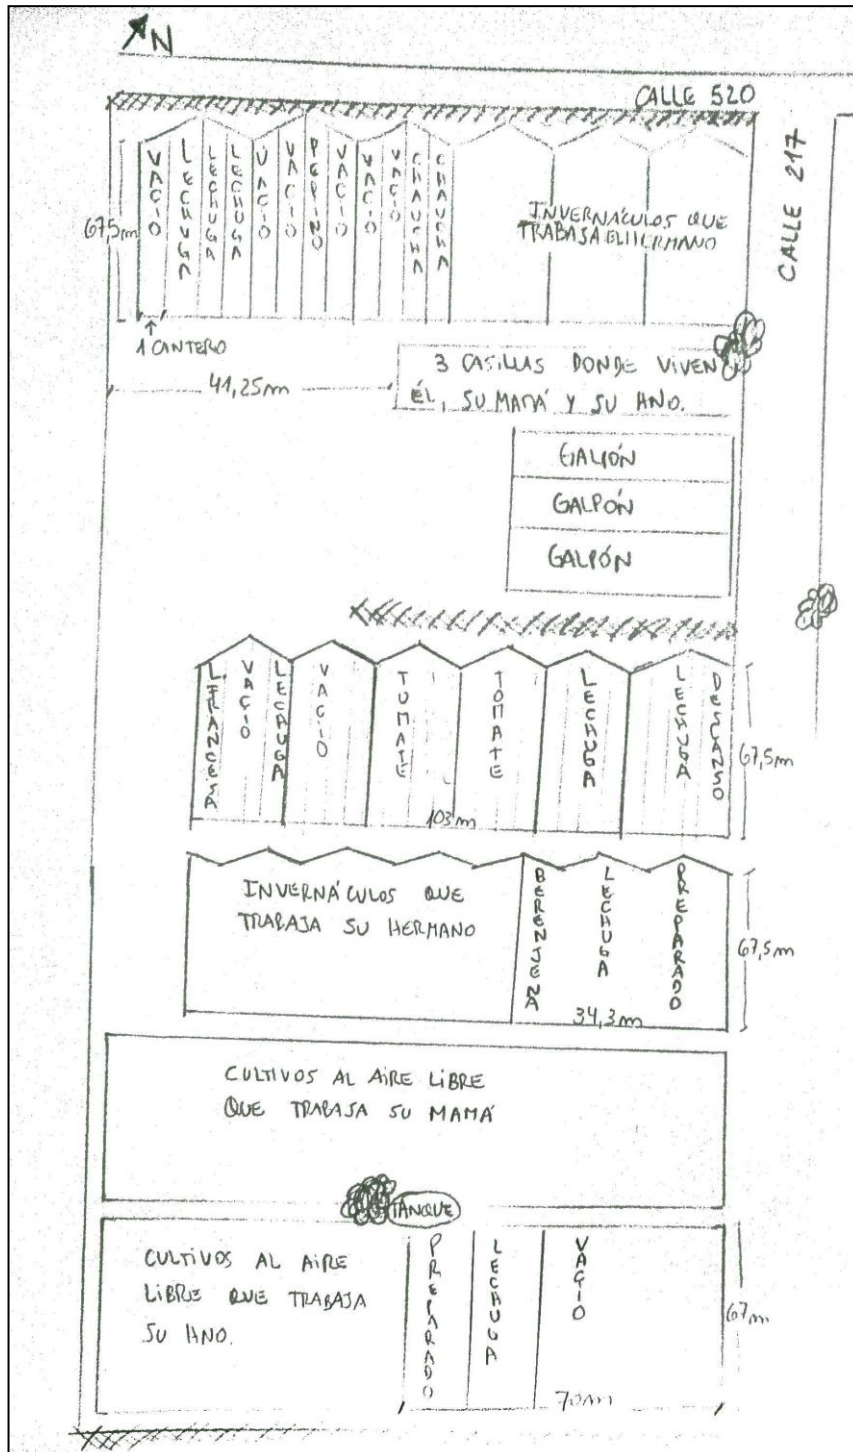 N
CALLE 520
CALLE 217
67,5m
VACIO
LECHUGA
LECHUGA
LECHUGA
VACIO
VACIO
PEPINO
VACIO
VACIO
VACIO
CHAUCHA
CHAUCHA
INVERNÁCULOS QUE
TRABAJA EL HERMANO
1 CANTERO
41,25m
3 CASILLAS DONDE VIVEN
ÉL, SU MAMÁ Y SU HNO.
GALPÓN
GALPÓN
GALPÓN
L.FRANCESA
VACIO
LECHUGA
VACIO
TOMATE
TOMATE
LECHUGA
LECHUGA
DESCANSO
67,5m
103m
INVERNÁCULOS QUE
TRABAJA SU HERMANO
BERENJENA
LECHUGA
PREPARADO
67,5m
34,3m
CULTIVOS AL AIRE LIBRE
QUE TRABAJA SU MAMÁ
TANQUE
CULTIVOS AL AIRE
LIBRE QUE TRABAJA
SU HNO.
PREPARADO
LECHUGA
VACIO
67m
70m